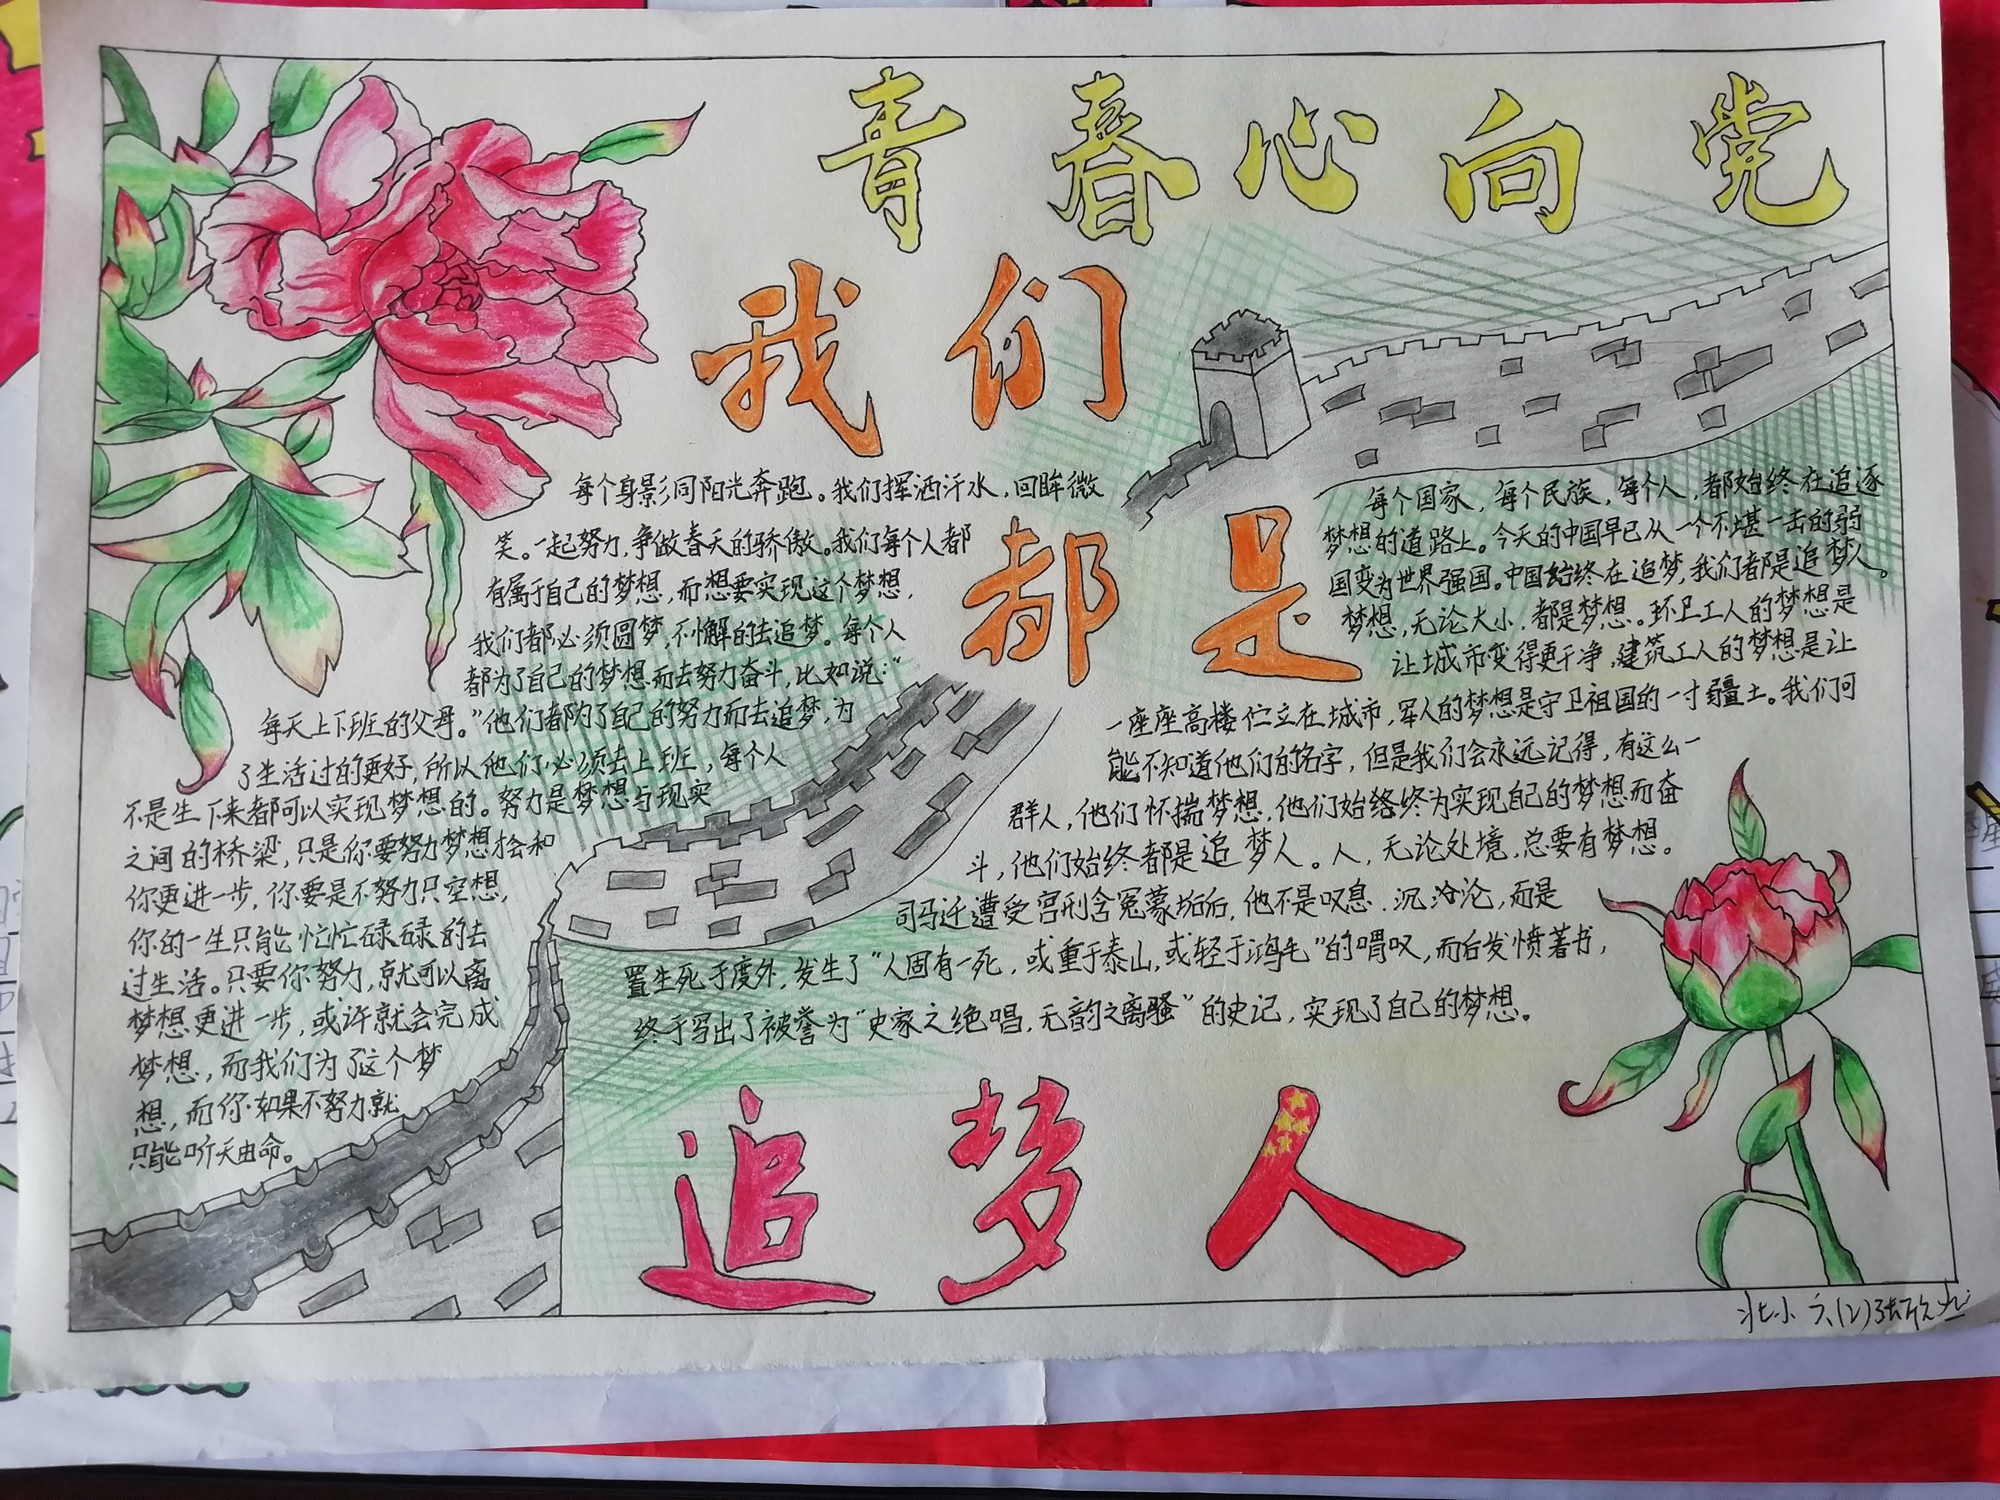 青春心向党
我们
都是
每个身影同阳光奔跑。我们挥洒汗水,回眸微
笑。一起努力,争做春天的骄傲。我们每个人都
有属于自己的梦想,而想要实现这个梦想,
我们都必须圆梦,不懈的去追梦。每个人
都为了自己的梦想而去努力奋斗,比如说:“
每天上下班的父母。”他们都为了自己的努力而去追梦,为
了生活过的更好,所以他们必须去上班,每个人
不是生下来都可以实现梦想的。努力是梦想与现实
之间的桥梁,只是你要努力梦想才会和
你更进一步,你要是不努力只空想,
你的一生只能忙忙碌碌的去
过生活。只要你努力,就可以离
梦想更进一步,或许就会完成
梦想,而我们为了这个梦
想,而你如果不努力就
只能听天由命。
每个国家,每个民族,每个人,都始终在追逐
梦想的道路上。今天的中国早已从一个不堪一击的弱
国变为世界强国。中国始终在追梦,我们都是追梦人。
梦想,无论大小,都是梦想。环卫工人的梦想是
让城市变得更干净,建筑工人的梦想是让
一座座高楼伫立在城市,军人的梦想是守卫祖国的一寸疆土。我们可
能不知道他们的名字,但是我们会永远记得,有这么一
群人,他们怀揣梦想,他们始终为实现自己的梦想而奋
斗,他们始终都是追梦人。人,无论处境,总要有梦想。
司马迁遭受宫刑含冤蒙垢后,他不是叹息.沉沦,而是
置生死于度外,发生了“人固有一死,或重于泰山,或轻于鸿毛”的喟叹,而后发愤著书,
终于写出了被誉为“史家之绝唱,无韵之离骚”的史记,实现了自己的梦想。
追梦人
北小 六(2)张欣